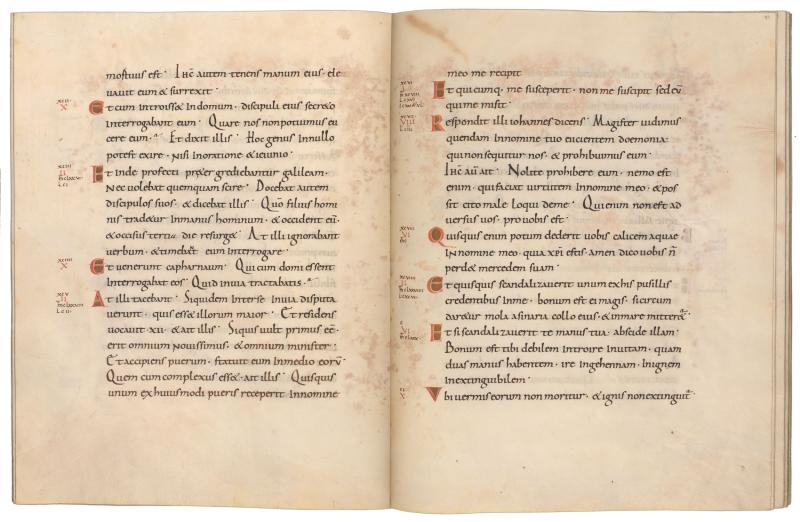 mortuus est· Ihc̄ autem tenens manum eius· ele
uauit eum & surrexit·
Et cum introiss& indomum· discipuli eius secr&o
Interrogabant eum· Quare nos nonpotuimus eI
cere eum·? Et dixit illis· Hoc genus Innullo
potest exire· Nisi Inoratione & ieiunio·
Et inde profecti pr&er grediebantur galileam·
Nec uolebat quemquam scire· Docebat autem
discipulos suos· & dicebat illis· Quō filius homi
nis trad&ur Inmanus hominum· & occident eū·
& occisus tertia die resurg&· At illi ignorabant
uerbum· & timebant eum interrogare·
Et uenerunt capharnaum· Qui cum domi essent
Interrogabat eos· Quid inuia tractabatis·?
At illi tacebant· Siquidem Interse Inuia disputa
uerunt· quis ess& illorum maior· Et residens
uocauit xii· & ait illis· Siquis uult primus eē·
erit omnium Nouissimus· & omnium minister·
Et accipiens puerum· statuit eum Inmedio eorū·
Quem cum complexus ess&· ait illis· Quisquis
unum ex huiusmodi pueris receperit Innomine
meo me recipit
Et quicumq· me susceperit· non me suscipit sed eū
qui me misit·
Respondit illi iohannes dicens· Magister uidimus
quendam Innomine tuo eicientem doemonia·
qui non sequitur nos· & prohibuimus eum·
Ihc̄ aū ait· Nolite prohibere eum· nemo est
enim· qui faciat uirtutem Innomine meo· & pos
sit cito male Loqui deme· Qui enim non est ad
uersus uos· pro uobis est·
Quisquis enim potum dederit uobis calicem aquae
INnomine meo· quia xp̄i estis· Amen dico uobis ñ
perd& mercedem suam·
Et quisquis scandalizauerit unum ex his pusillis
credentibus Inme· bonum est ei magis· si circum
dar&ur mola asinaria collo eius· & Inmare mitter&ur·
Et si scandalizauerit te manus tua· abscide illam·
Bonum est tibi debilem Introire Inuitam· quam
duas manus habentem· ire Ingehennam· In ignem
Inextinguibilem·
Vbi uermis eorum non moritur· & ignis non extinguit·